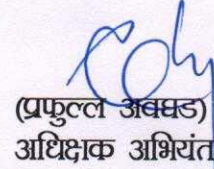 (प्रफुल्ल अवघड)
अधिक्षक अभियंत